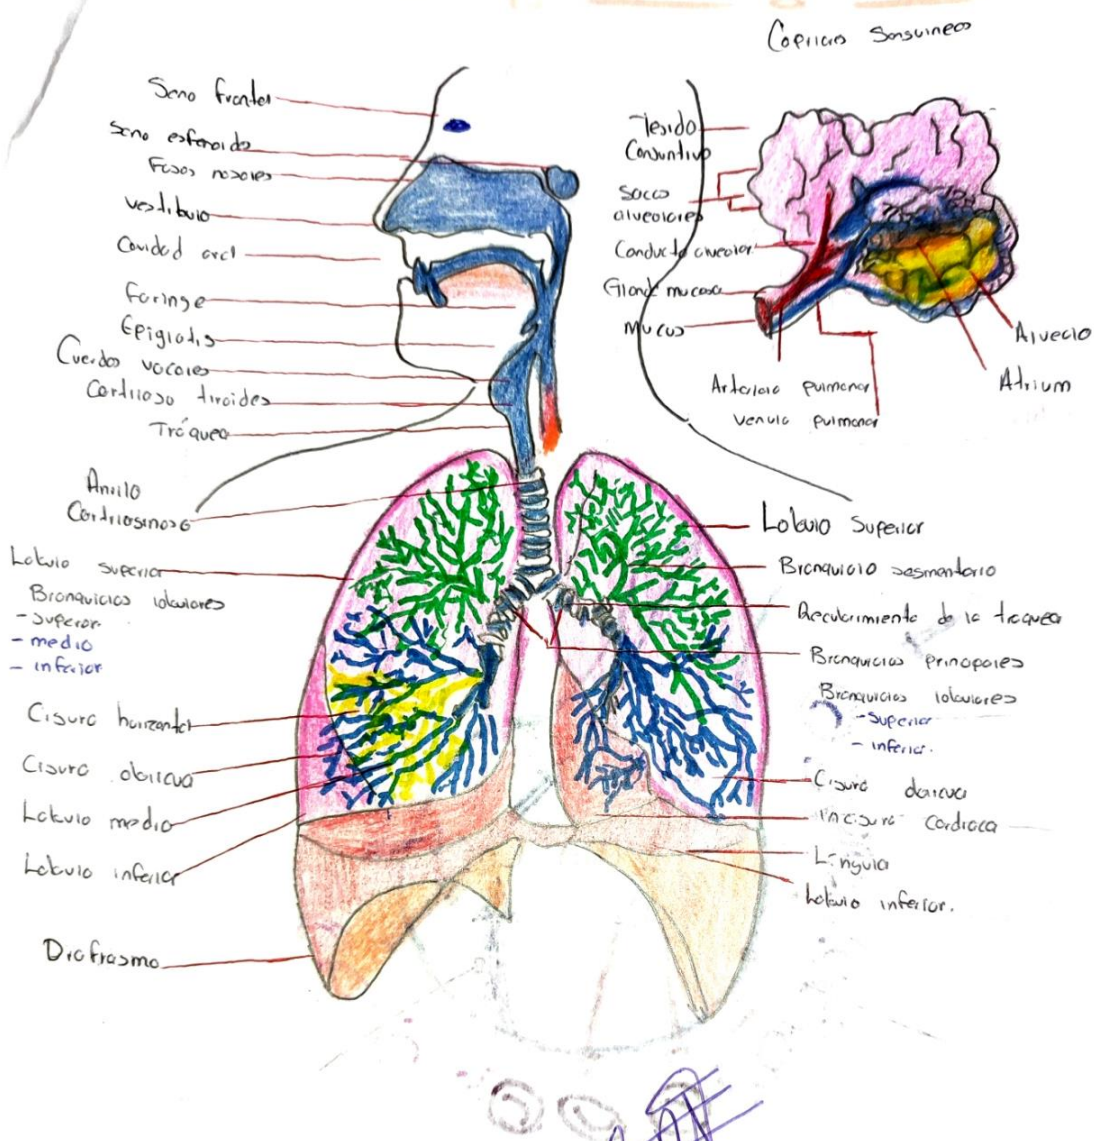 Capilares Sanguineos
Seno frontal
Seno esfenoide
Fosas nasales
Vestibulo
Cavidad oral
Faringe
Epiglotis
Cuerdas vocales
Cartilago tiroides
Tráquea
Anillo
Cartilaginoso
Lobulo superior
Bronquiolos lobulares
- superior
- medio
- inferior
Cisura horizontal
Cisura oblicua
Lobulo medio
Lobulo inferior
Diafragma
Tejido
Conjuntivo
Sacos
alveolares
Conducto alveolar
Gland mucosa
Mucus
Arteriola pulmonar
venula pulmonar
Alveolo
Atrium
Lobulo Superior
Bronquiolo segmentario
de la traquea
Bronquiolos principales
Bronquiolos lobulares
- Superior
- inferior.
Cisura
incisura Cardiaca
Lingula
Lobulo inferior.